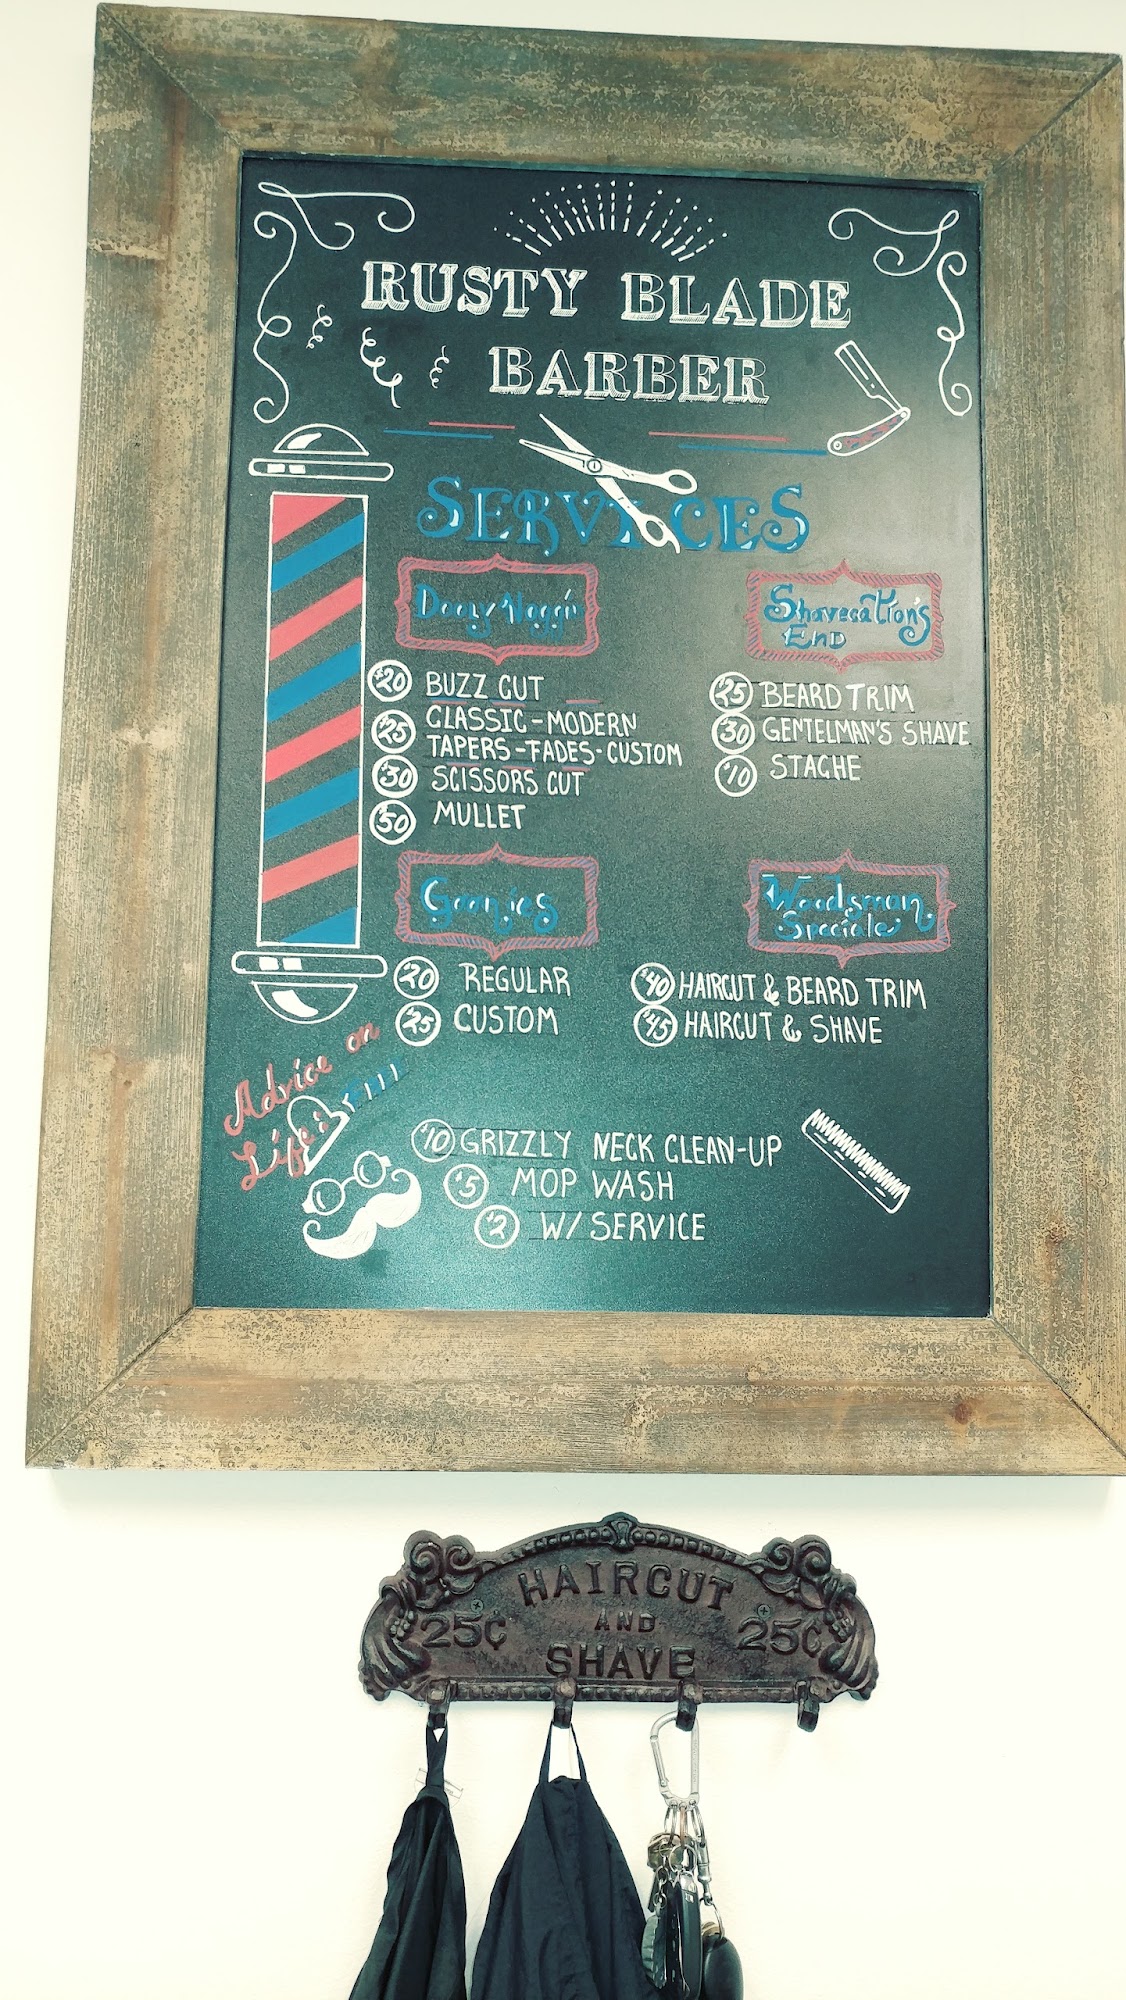 RUSTY BLADE
BARBER
SERVICES
$20 BUZZ CUT
$25 CLASSIC-MODERN
TAPERS-FADES-CUSTOM
$30 SCISSORS CUT
$50 MULLET
Shavecation's
End
$25 BEARD TRIM
$30 GENTELMAN'S SHAVE
$10 STACHE
Goonies
20 REGULAR
25 CUSTOM
Woodsman
Speciale
$40 HAIRCUT & BEARD TRIM
$45 HAIRCUT & SHAVE
Advice on
Life:
$10 GRIZZLY NECK CLEAN-UP
$5 MOP WASH
$2 W/ SERVICE
HAIRCUT
25¢ AND 25¢
SHAVE